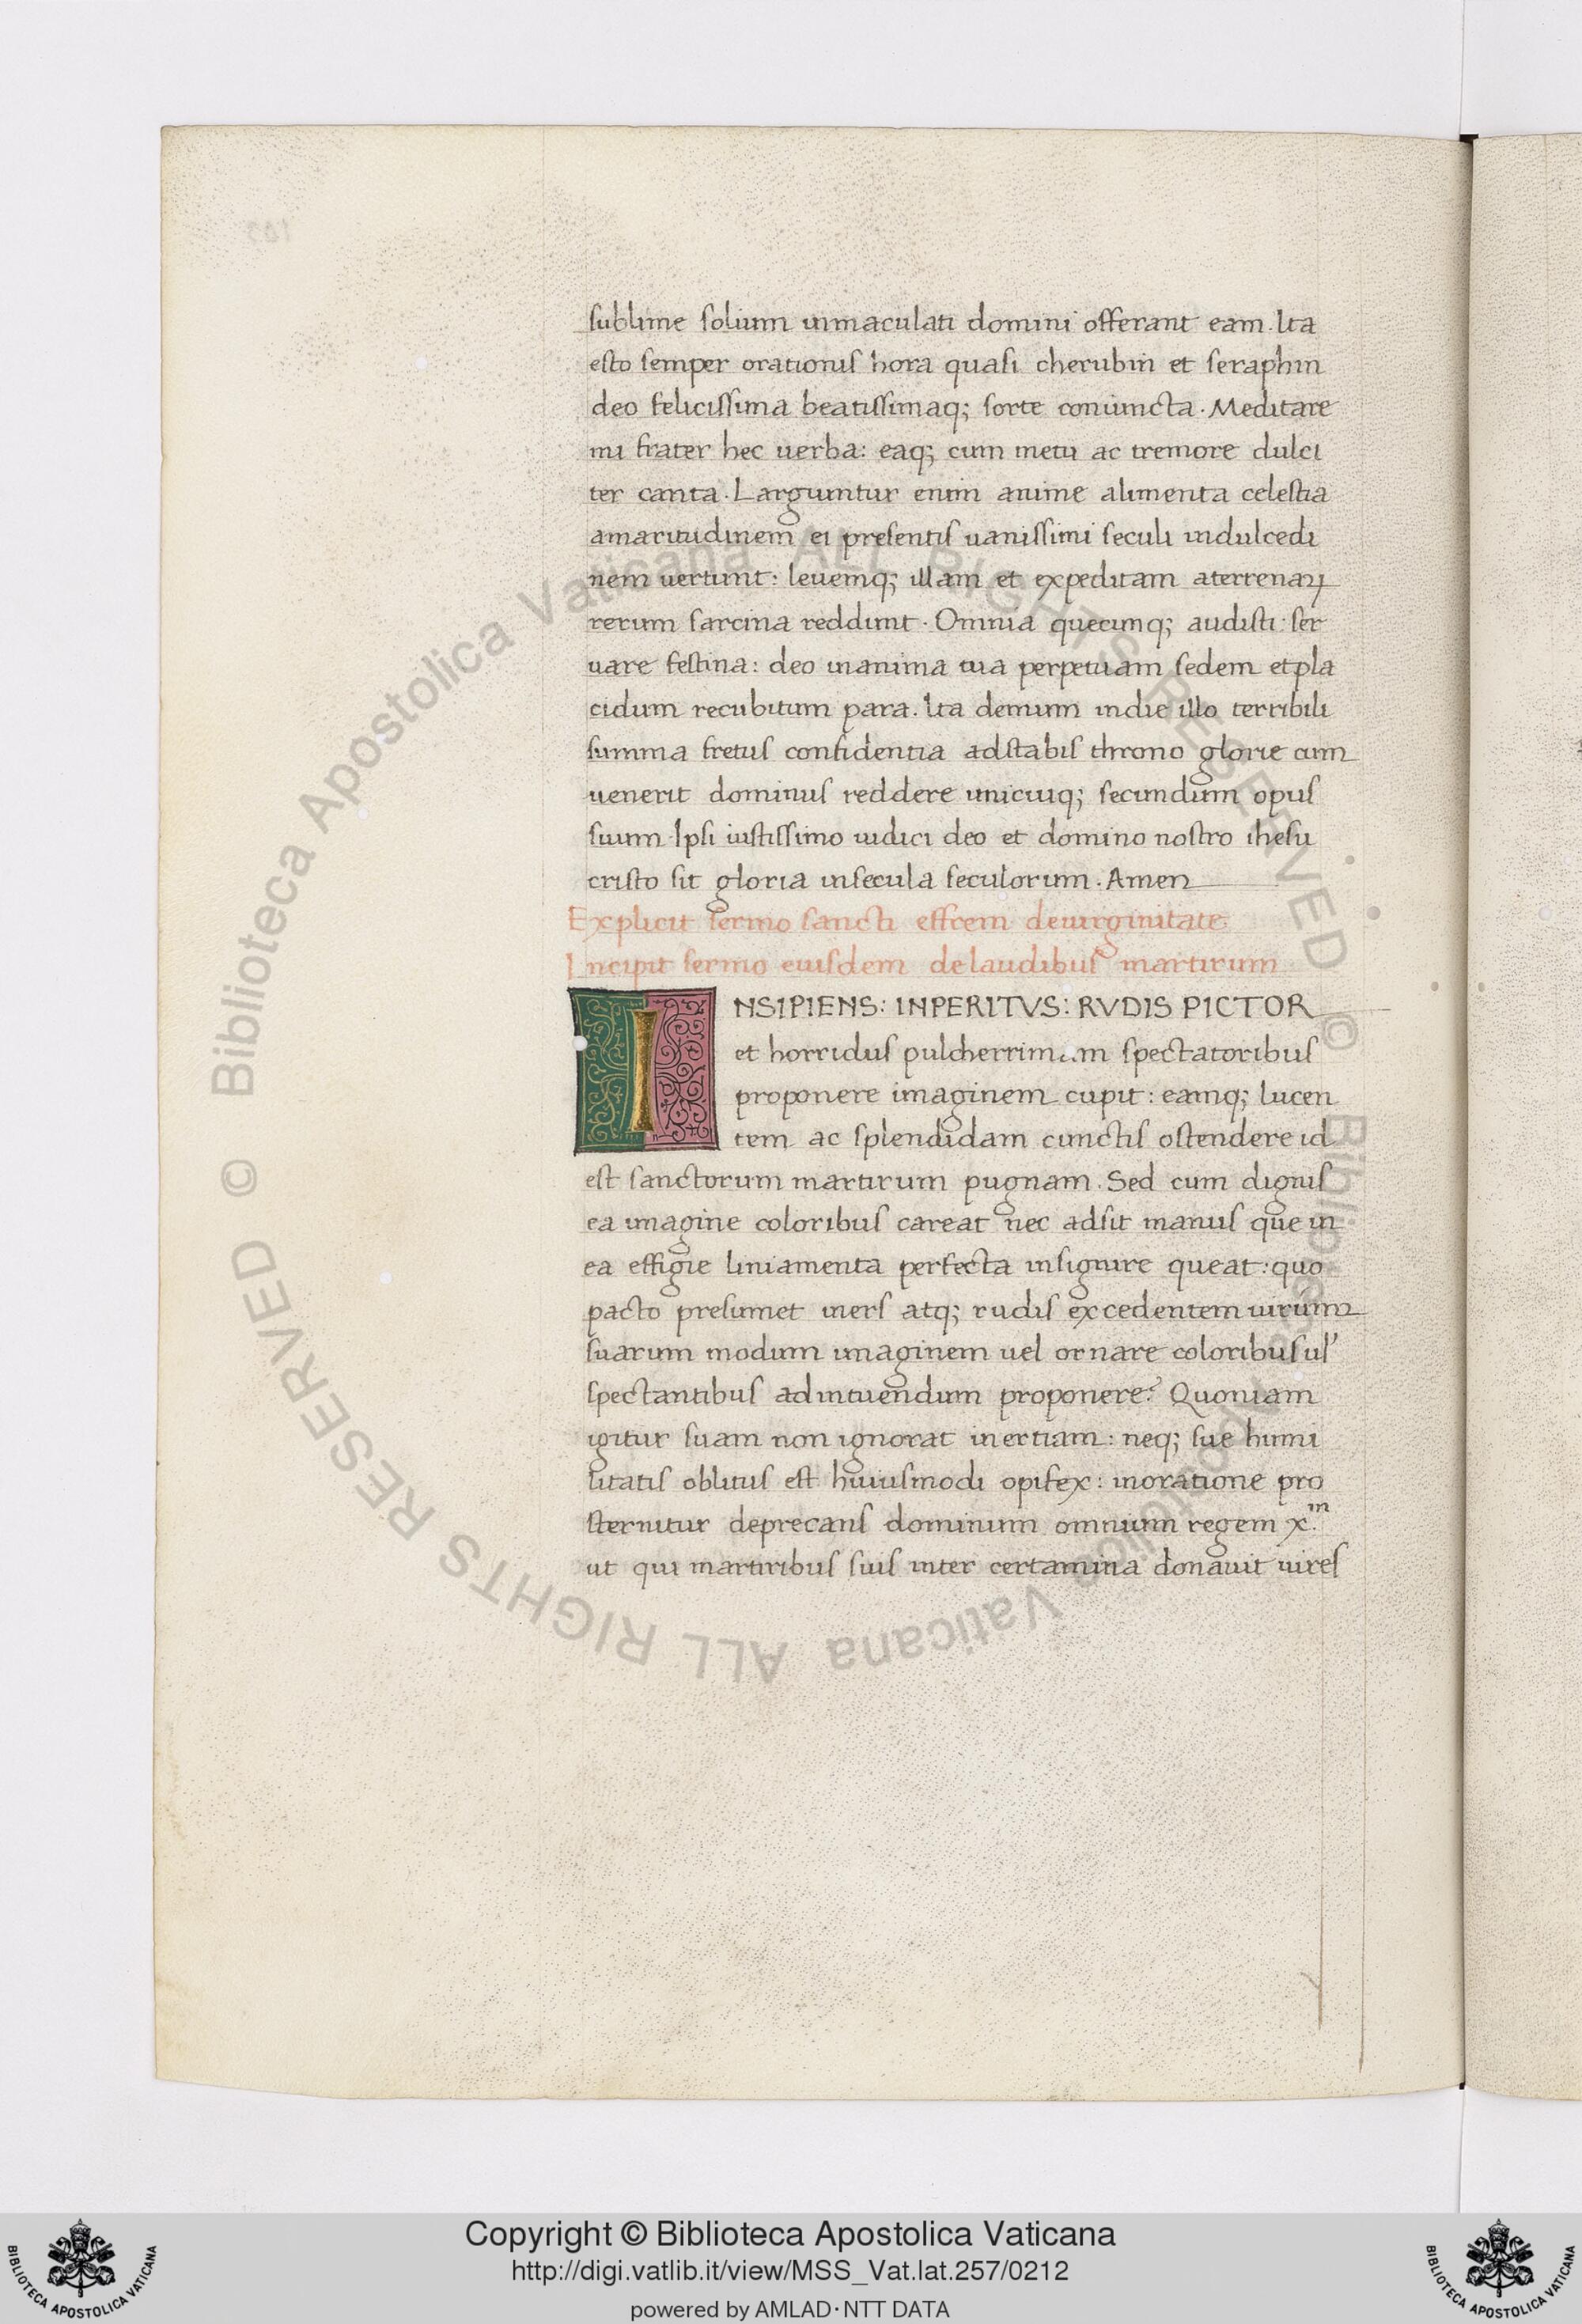 sublime solium inmaculati domini offerant eam. Ita
esto semper orationis hora quasi cherubin et seraphin
deo felicissima beatissimaq; sorte coniuncta. Meditare
mi frater hec uerba: eaq; cum metu ac tremore dulci
ter canta. Larguntur enim anime alimenta celestia
amaritudinem ei presentis uanissimi seculi indulcedi
nem uertunt: leuemq; illam et expeditam aterrenaꝝ
rerum sarcina reddunt. Omnia quecunq; audisti: ser
uare festina: deo inanima tua perpetuam sedem etpla
cidum recubitum para. Ita demum indie illo terribili
summa fretus confidentia adstabis throno glorie cum
uenerit dominus reddere unicuiq; secundum opus
suum. Ipsi iustissimo iudici deo et domino nostro ihesu
cristo sit gloria insecula seculorum. Amen
Explicit sermo sancti effrem deuirginitate
Incipit sermo eiusdem delaudibus martirum
INSIPIENS: INPERITVS: RVDIS PICTOR
et horridus pulcherrimam spectatoribus
proponere imaginem cupit: eamq; lucen
tem ac splendidam cunctis ostendere id
est sanctorum martirum pugnam. Sed cum dignis
ea imagine coloribus careat nec adsit manus que in
ea effigie liniamenta perfecta insignire queat: quo
pacto presumet iners atq; rudis excedentem uirium
suarum modum imaginem uel ornare coloribus ul'
spectantibus adintuendum proponere? Quoniam
igitur suam non ignorat inertiam: neq; sue humi
litatis oblitus est huiusmodi opifex: inoratione pro
sternitur deprecans dominum omnium regem x.m
ut qui martiribus suis inter certamina donauit uires
© Biblioteca Apostolica Vaticana ALL RIGHTS RESERVED
© Biblioteca Apostolica Vaticana ALL RIGHTS RESERVED
Copyright © Biblioteca Apostolica Vaticana
http://digi.vatlib.it/view/MSS_Vat.lat.257/0212
powered by AMLAD·NTT DATA
BIBLIOTECA APOSTOLICA VATICANA
BIBLIOTECA APOSTOLICA VATICANA